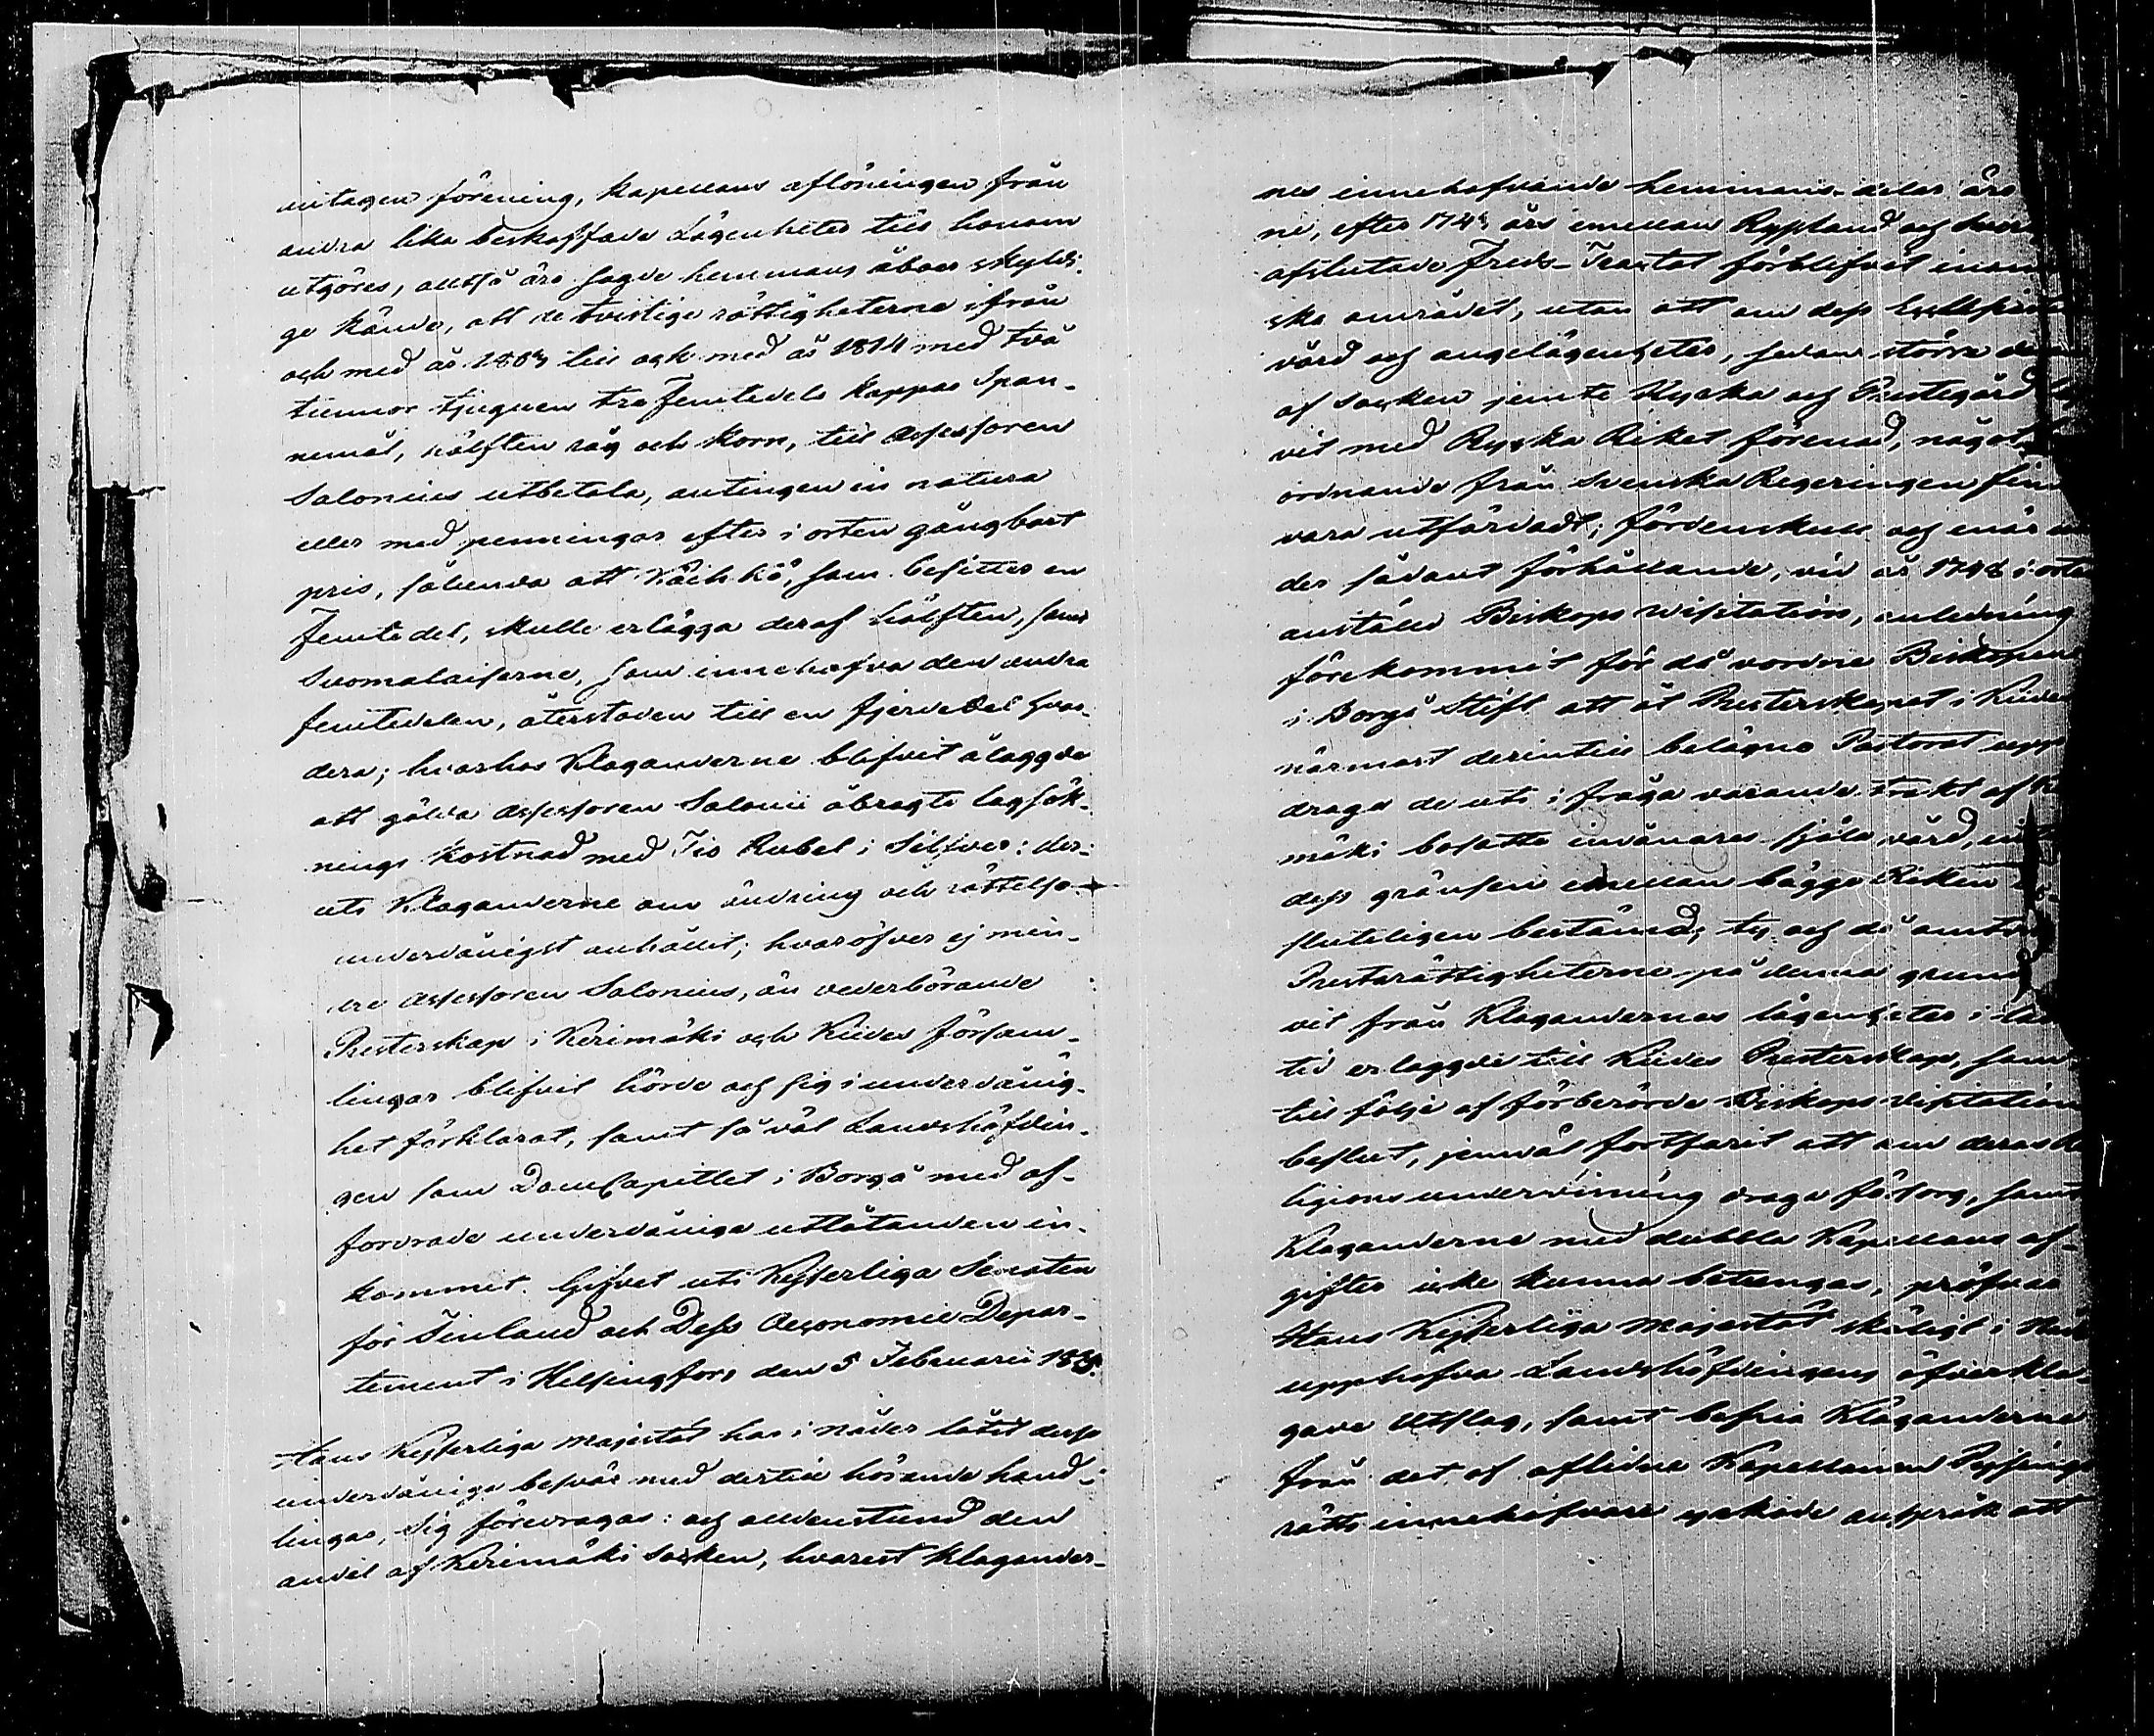 intagen förening, kapellans aflöningen från
andra lika beskaffade Lägenheter till honom
utgöres, alltså äro sagde hemmans åboer skyldi-
ge kände, att de tvistige rättigheterne ifrån
och med år 1809 till och med år 1814 med två
tunnor tjuguen tre femtedels kappar Span-
nemål, hälften råg och korn, till Assessoren
Salonius utbetala, antingen in natura
eller med penningar efter i orten gångbart
pris, sålunda att Väihkö, som besitter en
femtedel, skulle erlägga deraf hälften, samt
Suomalaiserne, som innehafva den andra
femtedelen, återstoden till en fjerdedel hvar-
dera; hvarhos Klaganderne blifvit ålaggde
att gälda Assessoren Salonii åbragte lagsök-
nings kostnad med Tio Rubel i Silfver: der-
uti Klaganderne om ändring och rättelse
underdånigst anhållit; hvaröfver ej min-
dre Assessoren Salonius, än vederbörande
Presterskap i Kerimäki och Kides försam-
lingar blifvit hörde och sig i underdånig-
het förklarat, samt så väl Landshöfdin-
gen som DomCapitlet i Borgå med af-
fordrade underdåniga utlåtanden in-
kommit. Gifvet uti Kejserliga Senaten
för Finland och Dess Oeconomie Depar-
tement i Helsingfors den 5 Februarii
Hans Kejserliga Majestät har i nåder låtit desse
underdåniga besvär med dertill hörande hand-
lingar, Sig föredragas: och alldenstund den
andel af Kerimäki Socken, hvarest Klagander-
nes innehafvande hemmans-delar äro
ne, efter 1743 års emellan Ryssland och
afslutade Freds-Tractat förblifvit
ska området, utan att om dess
vård och angelägenheter, sedan större
af Socken jemte Kyrka och Prestegård
vit med Ryska Riket förenad, något
ordnande från Svenska Regeringen
vara utfärdadt; fördenskull och enär
der sådant förhållande, vid år 1748 i
anstäld Biskops visitation, anledning
förekommit för då vordne Biskopen
i Borgå Stift att åt Presterskapet i
närmast derintill belägne Pastorat
draga de uti i fråga varande trakt af
mäki bosatte invånares själavård,
dess gränsen emellan bägge Riken
sluteligen bestämd; ty och då
Prestarättigheterne på denna grund
vit från Klagandernes lägenheter i
tid erlaggde till Kides Presterskap, som
till följe af förberörde Biskops visitation
beslut, jemväl fortfarit att om deras
ligions undervisning draga försorg, samt
Klaganderne med dubbla Kapellans af-
gifter icke kunna betungas, pröfvar
Hans Kejserliga Majestät skäligt i
upphäfva Landshöfdingens öfverkla-
gade Utslag, samt befria Klaganderne
från det af aflidne Kapellanen
rätts innehafvare yrkade anspråk att